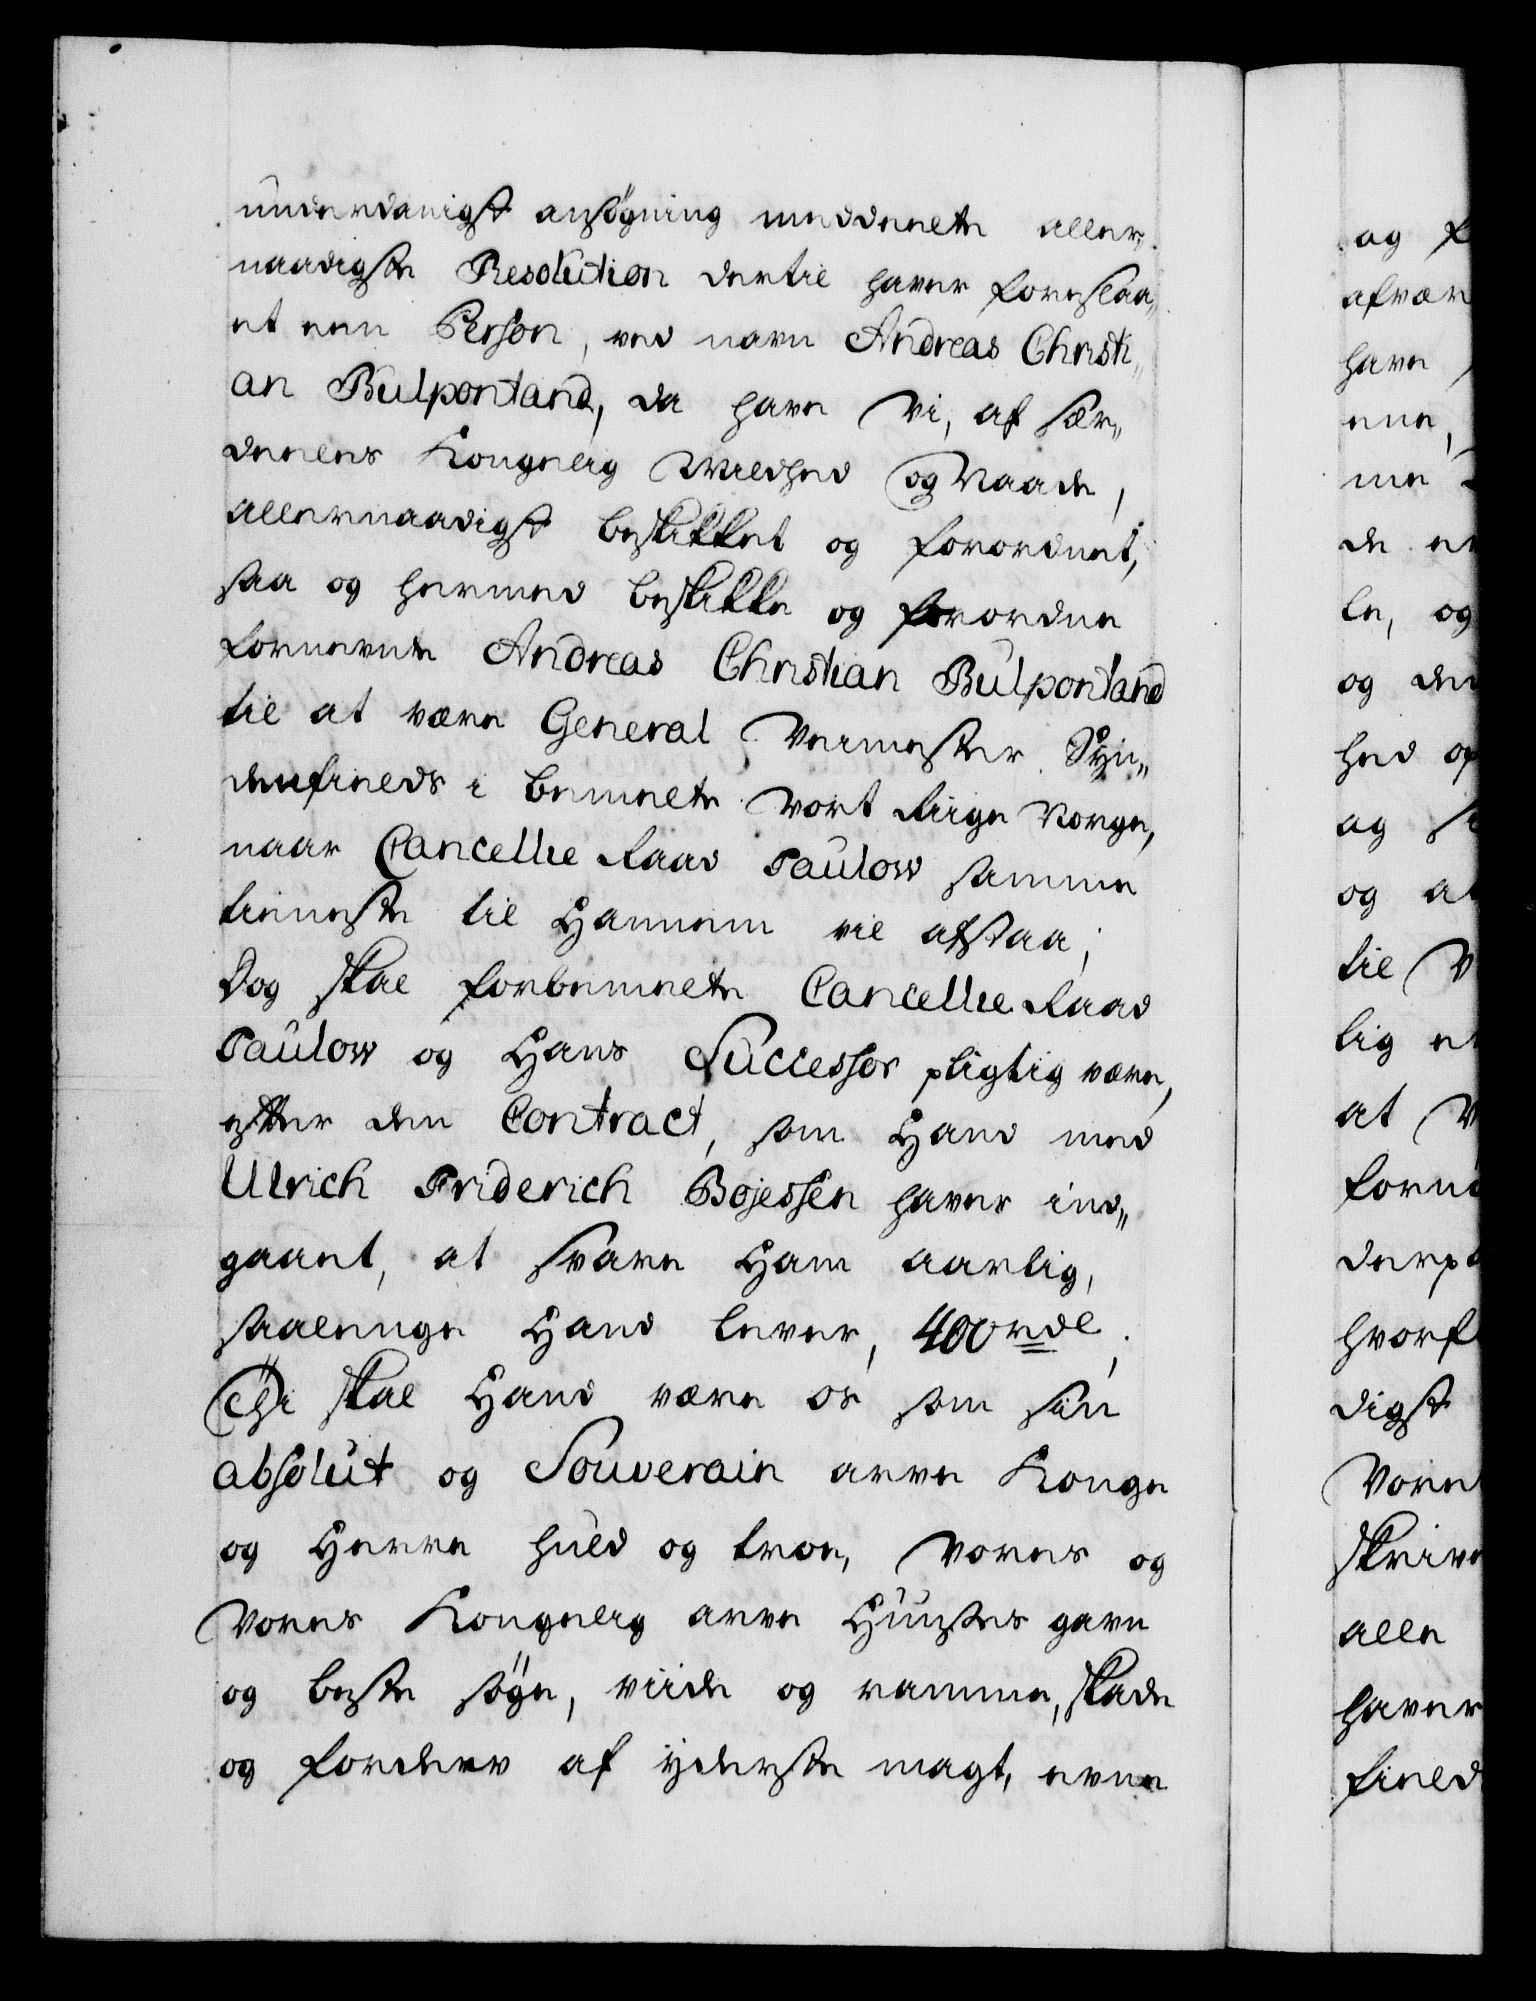 underdanigst ansøgning meddeelte aller,,
naadigste Resolution dertil haver foreslaa,,
et een Person, ved navn Andreas Christi,,
an Bulpontand, da have Vi, af sær,,
deeles Kongelig Mildhed og Naade,
allernaadigst beskikket og forordnet,
saa og hermed beskikke og forordne
fornevnte Andreas Christian Bulpontand
til at være General Veimester Syn,,
denfields i bemelte Vort Riige Norge,
naar Cancellie Raad Paulow samme
tieneste til Hannem vil afstaa;
Dog skal forbemelte Cancellie Raad
Paulow og Hans Successor pligtig være,
efter den Contract, som Hand med
Ulrich Friderich Bojessen haver ind,,
gaaet, at svare Ham aarlig,
saalenge Hand lever, 400 rdl;
Thi skal Hand være os som sin
absolut og Souverain arve Konge
og Herre huld og troe, Vores og
Vores Kongelig arve Huuses gavn
og beste søge, viide og ramme, skade
og forderv af yderste magt, evne
ag
afvær
have
ene,
me
de
le, og
og den
hed op
ag
og at
til V
lig
at
forn
derp
hvorf
digst
Vore
skrive
alle
haver
field